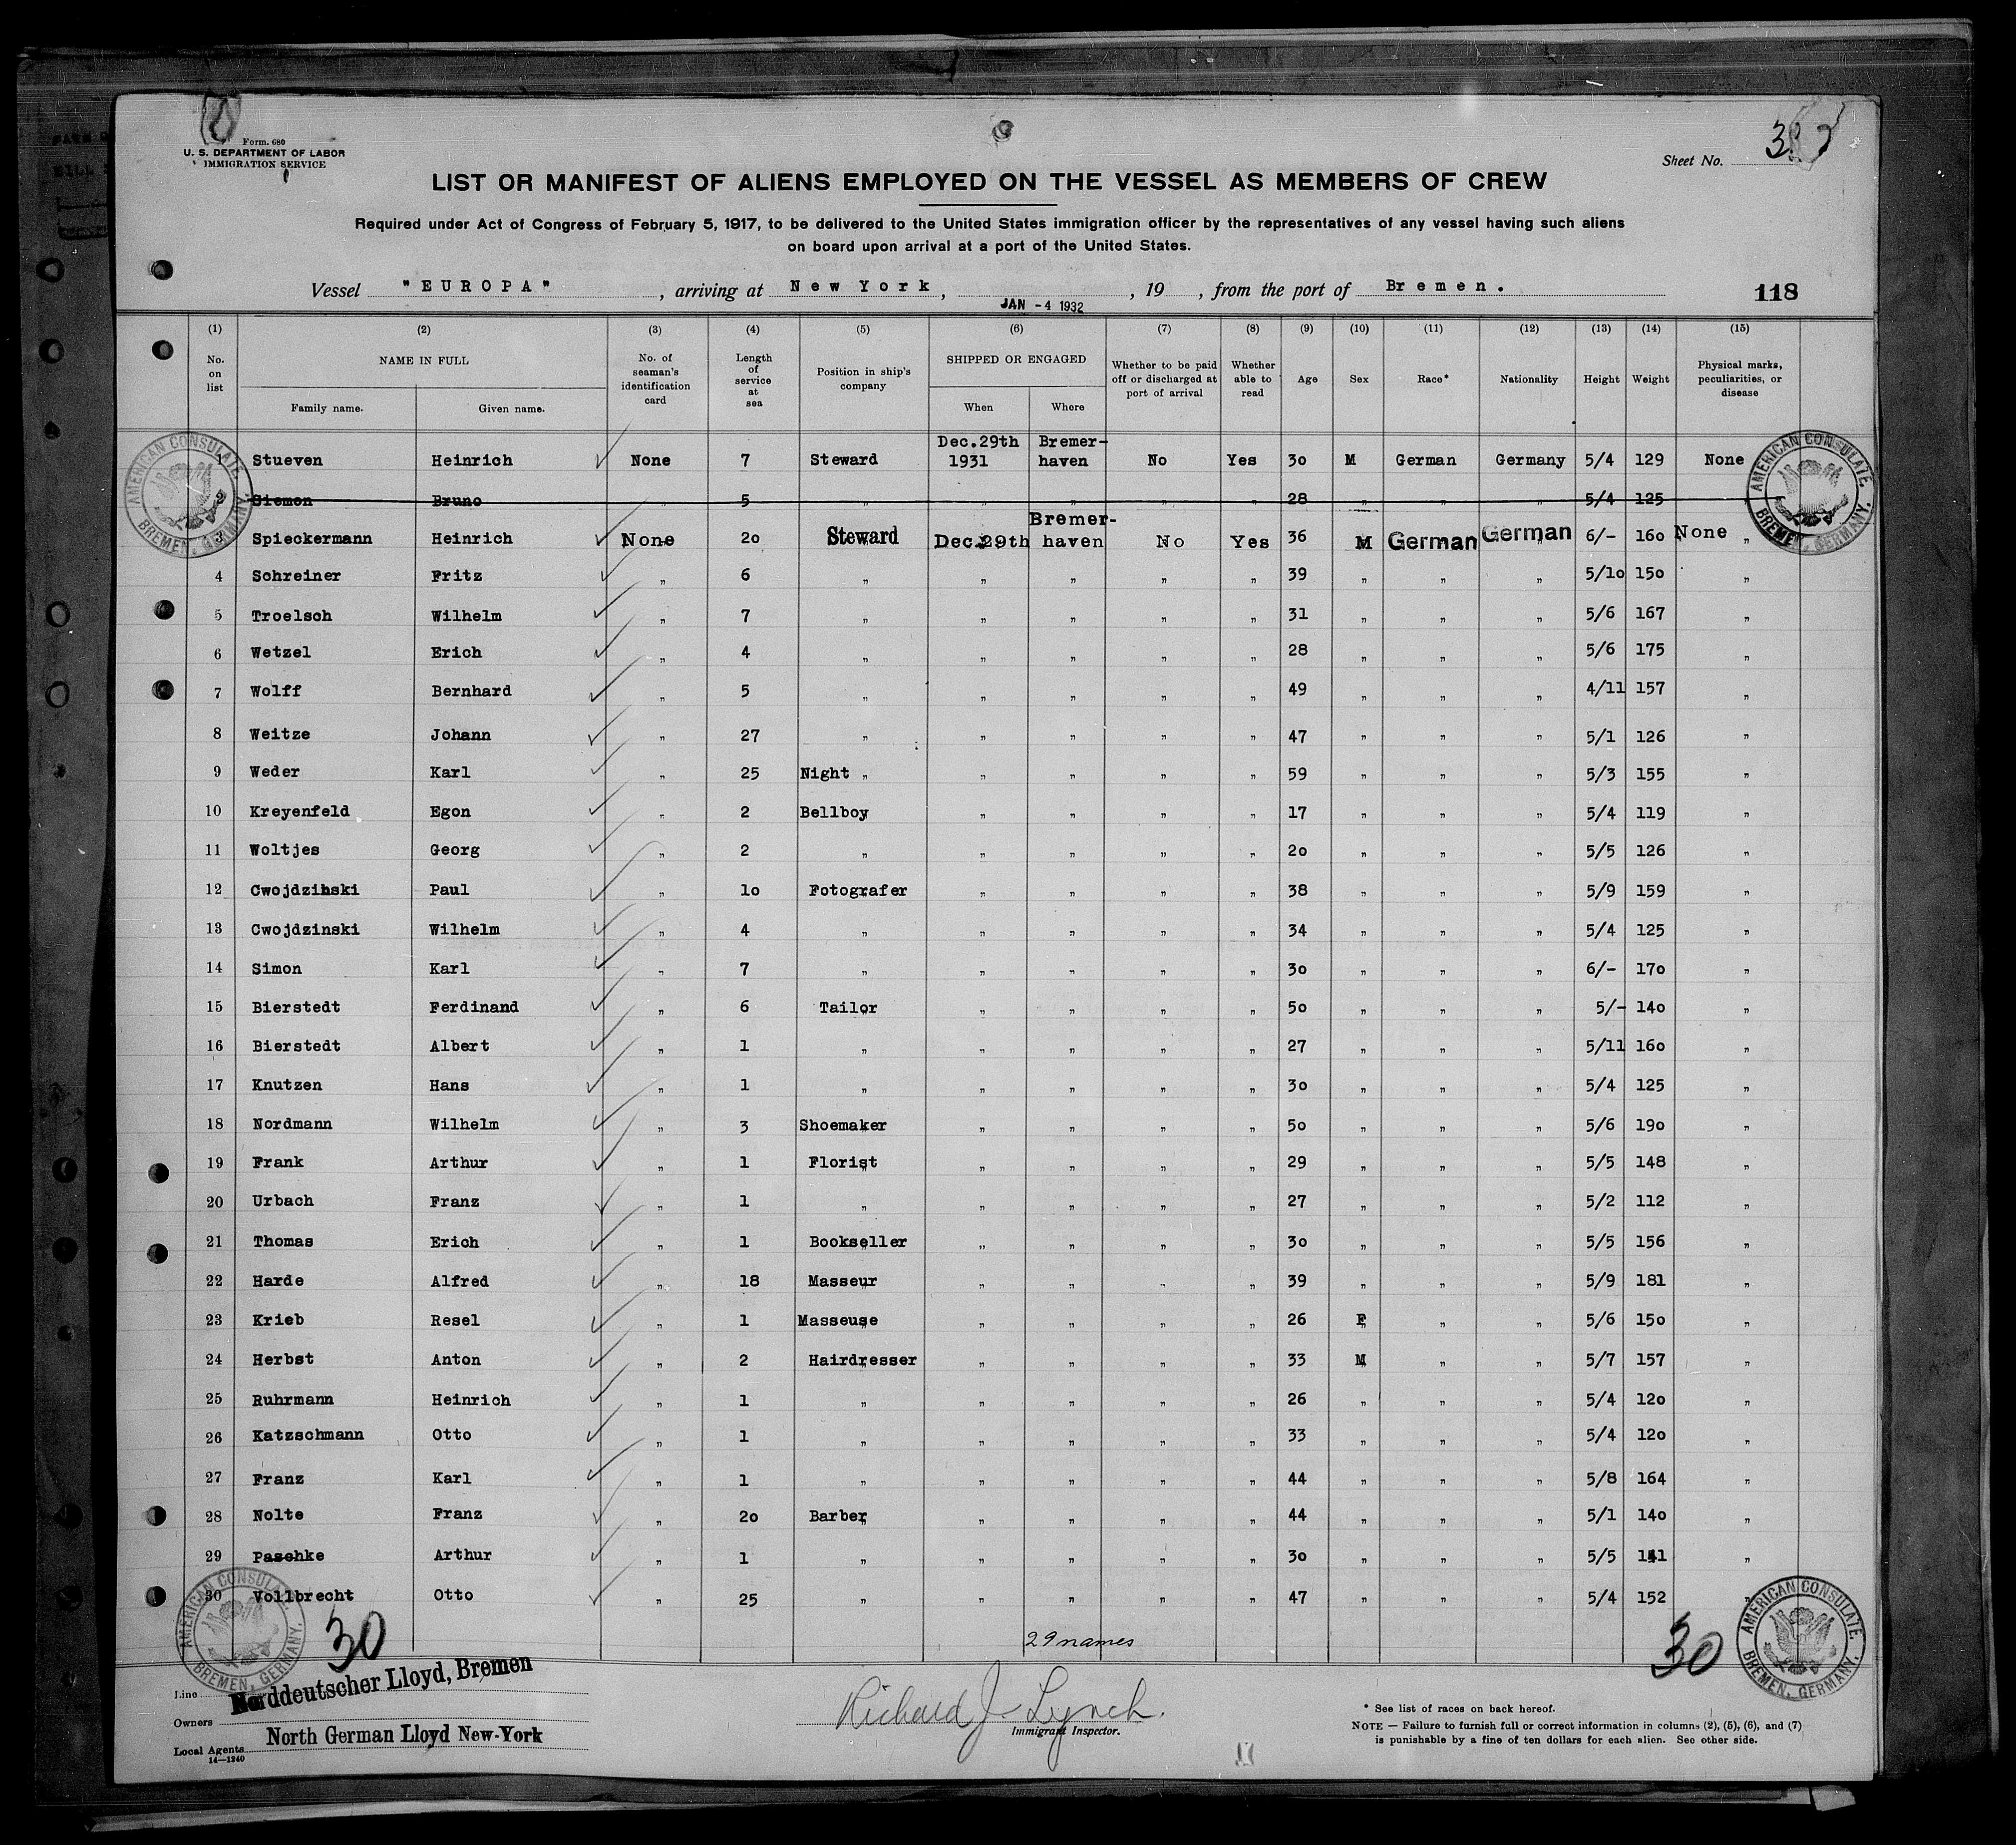 Form. 680
U. S. DEPARTMENT OF LABOR
IMMIGRATION SERVICE
Sheet No.
LIST OR MANIFEST OF ALIENS EMPLOYED ON THE VESSEL AS MEMBERS OF CREW
Required under Act of Congress of February 5, 1917, to be delivered to the United States immigration officer by the representatives of any vessel having such aliens
on board upon arrival at a port of the United States.
Vessel "EUROPA", arriving at New York, JAN -4 1932, 19 , from the port of Bremen. 118
(1) (2) (3) (4) (5) (6) (7) (8) (9) (10) (11) (12) (13) (14) (15)
No. on list NAME IN FULL Family name. Given name. No. of seaman's identification card Length of service at sea Position in ship's company SHIPPED OR ENGAGED When Where Whether to be paid off or discharged at port of arrival Whether able to read Age Sex Race* Nationality Height Weight Physical marks, peculiarities, or disease
1 Stueven Heinrich None 7 Steward Dec.29th 1931 Bremer-haven No Yes 30 M German Germany 5/4 129 None
2 Siemon Bruno " 5 " " " " " 28 " " " 5/4 125 "
3 Spieckermann Heinrich None 20 Steward Dec.29th Bremer-haven No Yes 36 M German German 6/- 160 None "
4 Schreiner Fritz " 6 " " " " " 39 " " " 5/10 150 "
5 Troelsch Wilhelm " 7 " " " " " 31 " " " 5/6 167 "
6 Wetzel Erich " 4 " " " " " 28 " " " 5/6 175 "
7 Wolff Bernhard " 5 " " " " " 49 " " " 4/11 157 "
8 Weitze Johann " 27 " " " " " 47 " " " 5/1 126 "
9 Weder Karl " 25 Night " " " " " 59 " " " 5/3 155 "
10 Kreyenfeld Egon " 2 Bellboy " " " " 17 " " " 5/4 119 "
11 Woltjes Georg " 2 " " " " " 20 " " " 5/5 126 "
12 Cwojdzinski Paul " 10 Fotografer " " " " 38 " " " 5/9 159 "
13 Cwojdzinski Wilhelm " 4 " " " " " 34 " " " 5/4 125 "
14 Simon Karl " 7 " " " " " 30 " " " 6/- 170 "
15 Bierstedt Ferdinand " 6 Tailor " " " " 50 " " " 5/- 140 "
16 Bierstedt Albert " 1 " " " " " 27 " " " 5/11 160 "
17 Knutzen Hans " 1 " " " " " 30 " " " 5/4 125 "
18 Nordmann Wilhelm " 3 Shoemaker " " " " 50 " " " 5/6 190 "
19 Frank Arthur " 1 Florist " " " " 29 " " " 5/5 148 "
20 Urbach Franz " 1 " " " " " 27 " " " 5/2 112 "
21 Thomas Erich " 1 Bookseller " " " " 30 " " " 5/5 156 "
22 Harde Alfred " 18 Masseur " " " " 39 " " " 5/9 181 "
23 Krieb Resel " 1 Masseuse " " " " 26 F " " 5/6 150 "
24 Herbst Anton " 2 Hairdresser " " " " 33 M " " 5/7 157 "
25 Ruhrmann Heinrich " 1 " " " " " 26 " " " 5/4 120 "
26 Katzschmann Otto " 1 " " " " " 33 " " " 5/4 120 "
27 Franz Karl " 1 " " " " " 44 " " " 5/8 164 "
28 Nolte Franz " 20 Barber " " " " 44 " " " 5/1 140 "
29 Paschke Arthur " 1 " " " " " 30 " " " 5/5 141 "
30 Vollbrecht Otto " 25 " " " " " 47 " " " 5/4 152 "
AMERICAN CONSULATE. BREMEN, GERMANY.
AMERICAN CONSULATE. BREMEN, GERMANY.
AMERICAN CONSULATE. BREMEN, GERMANY.
AMERICAN CONSULATE. BREMEN, GERMANY.
30 29 names 30
Line Norddeutscher Lloyd, Bremen
Owners
Local Agents North German Lloyd New-York
14—1240
Richard J. Lynch.
Immigrant Inspector.
* See list of races on back hereof.
NOTE — Failure to furnish full or correct information in columns (2), (5), (6), and (7)
is punishable by a fine of ten dollars for each alien. See other side.